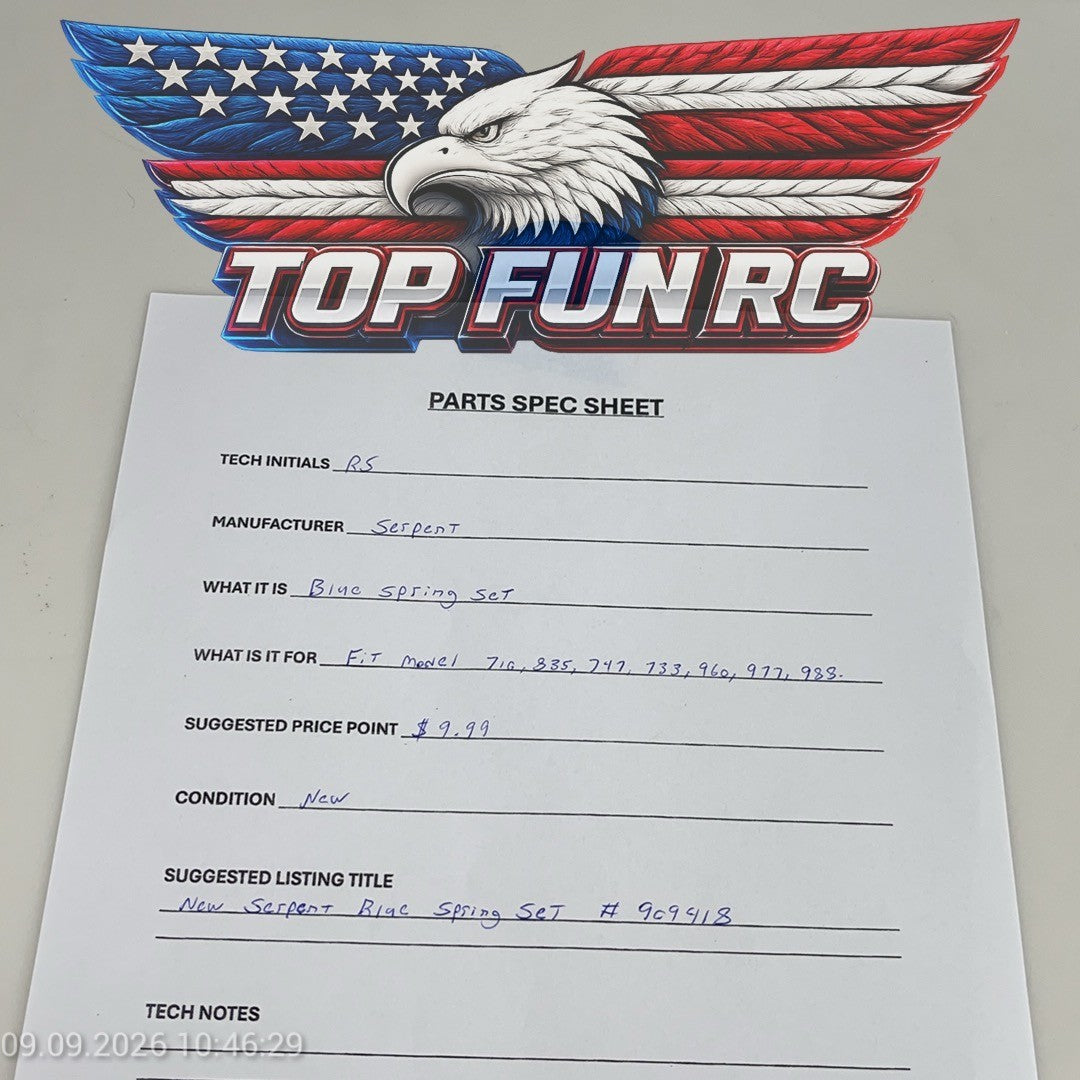 TOP FUN RC
PARTS SPEC SHEET
TECH INITIALS RS
MANUFACTURER Serpent
WHAT IT IS Blue Spring Set
WHAT IS IT FOR Fit model 710, 835, 747, 733, 960, 977, 988.
SUGGESTED PRICE POINT $ 9.99
CONDITION New
SUGGESTED LISTING TITLE
New Serpent Blue Spring Set # 909418
TECH NOTES
09.09.2026 10:46:29